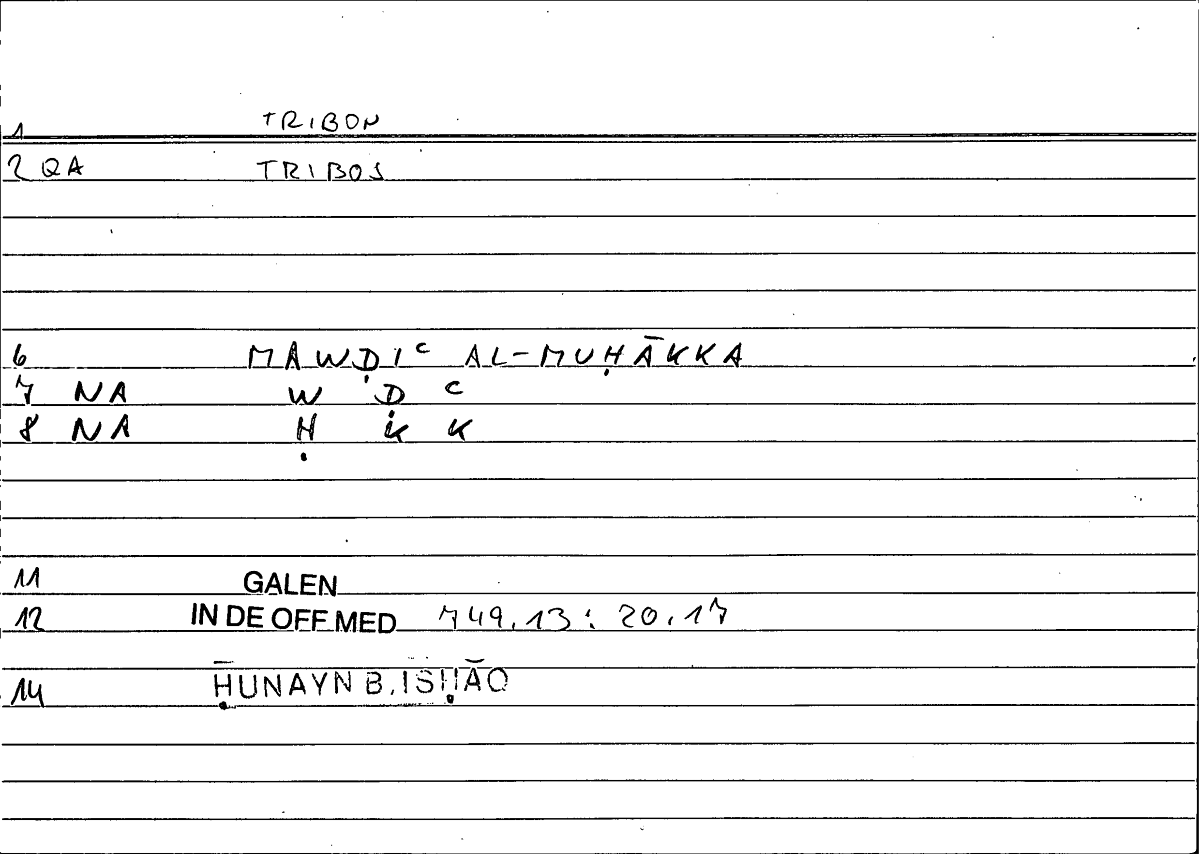 1 TRIBON
2 QA TRIBOS
6 MAWḌIᶜ AL-MUḤĀKKA
7 NA W Ḍ ᶜ
8 NA Ḥ K K
11 GALEN
12 IN DE OFF MED 749,13 : 20,17
14 ḤUNAYN B. ISḤĀQ